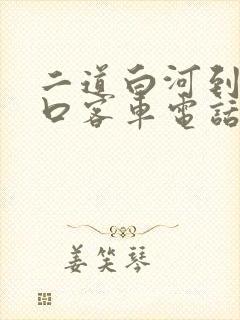 二道白河到
口客車電話
姜笑琴